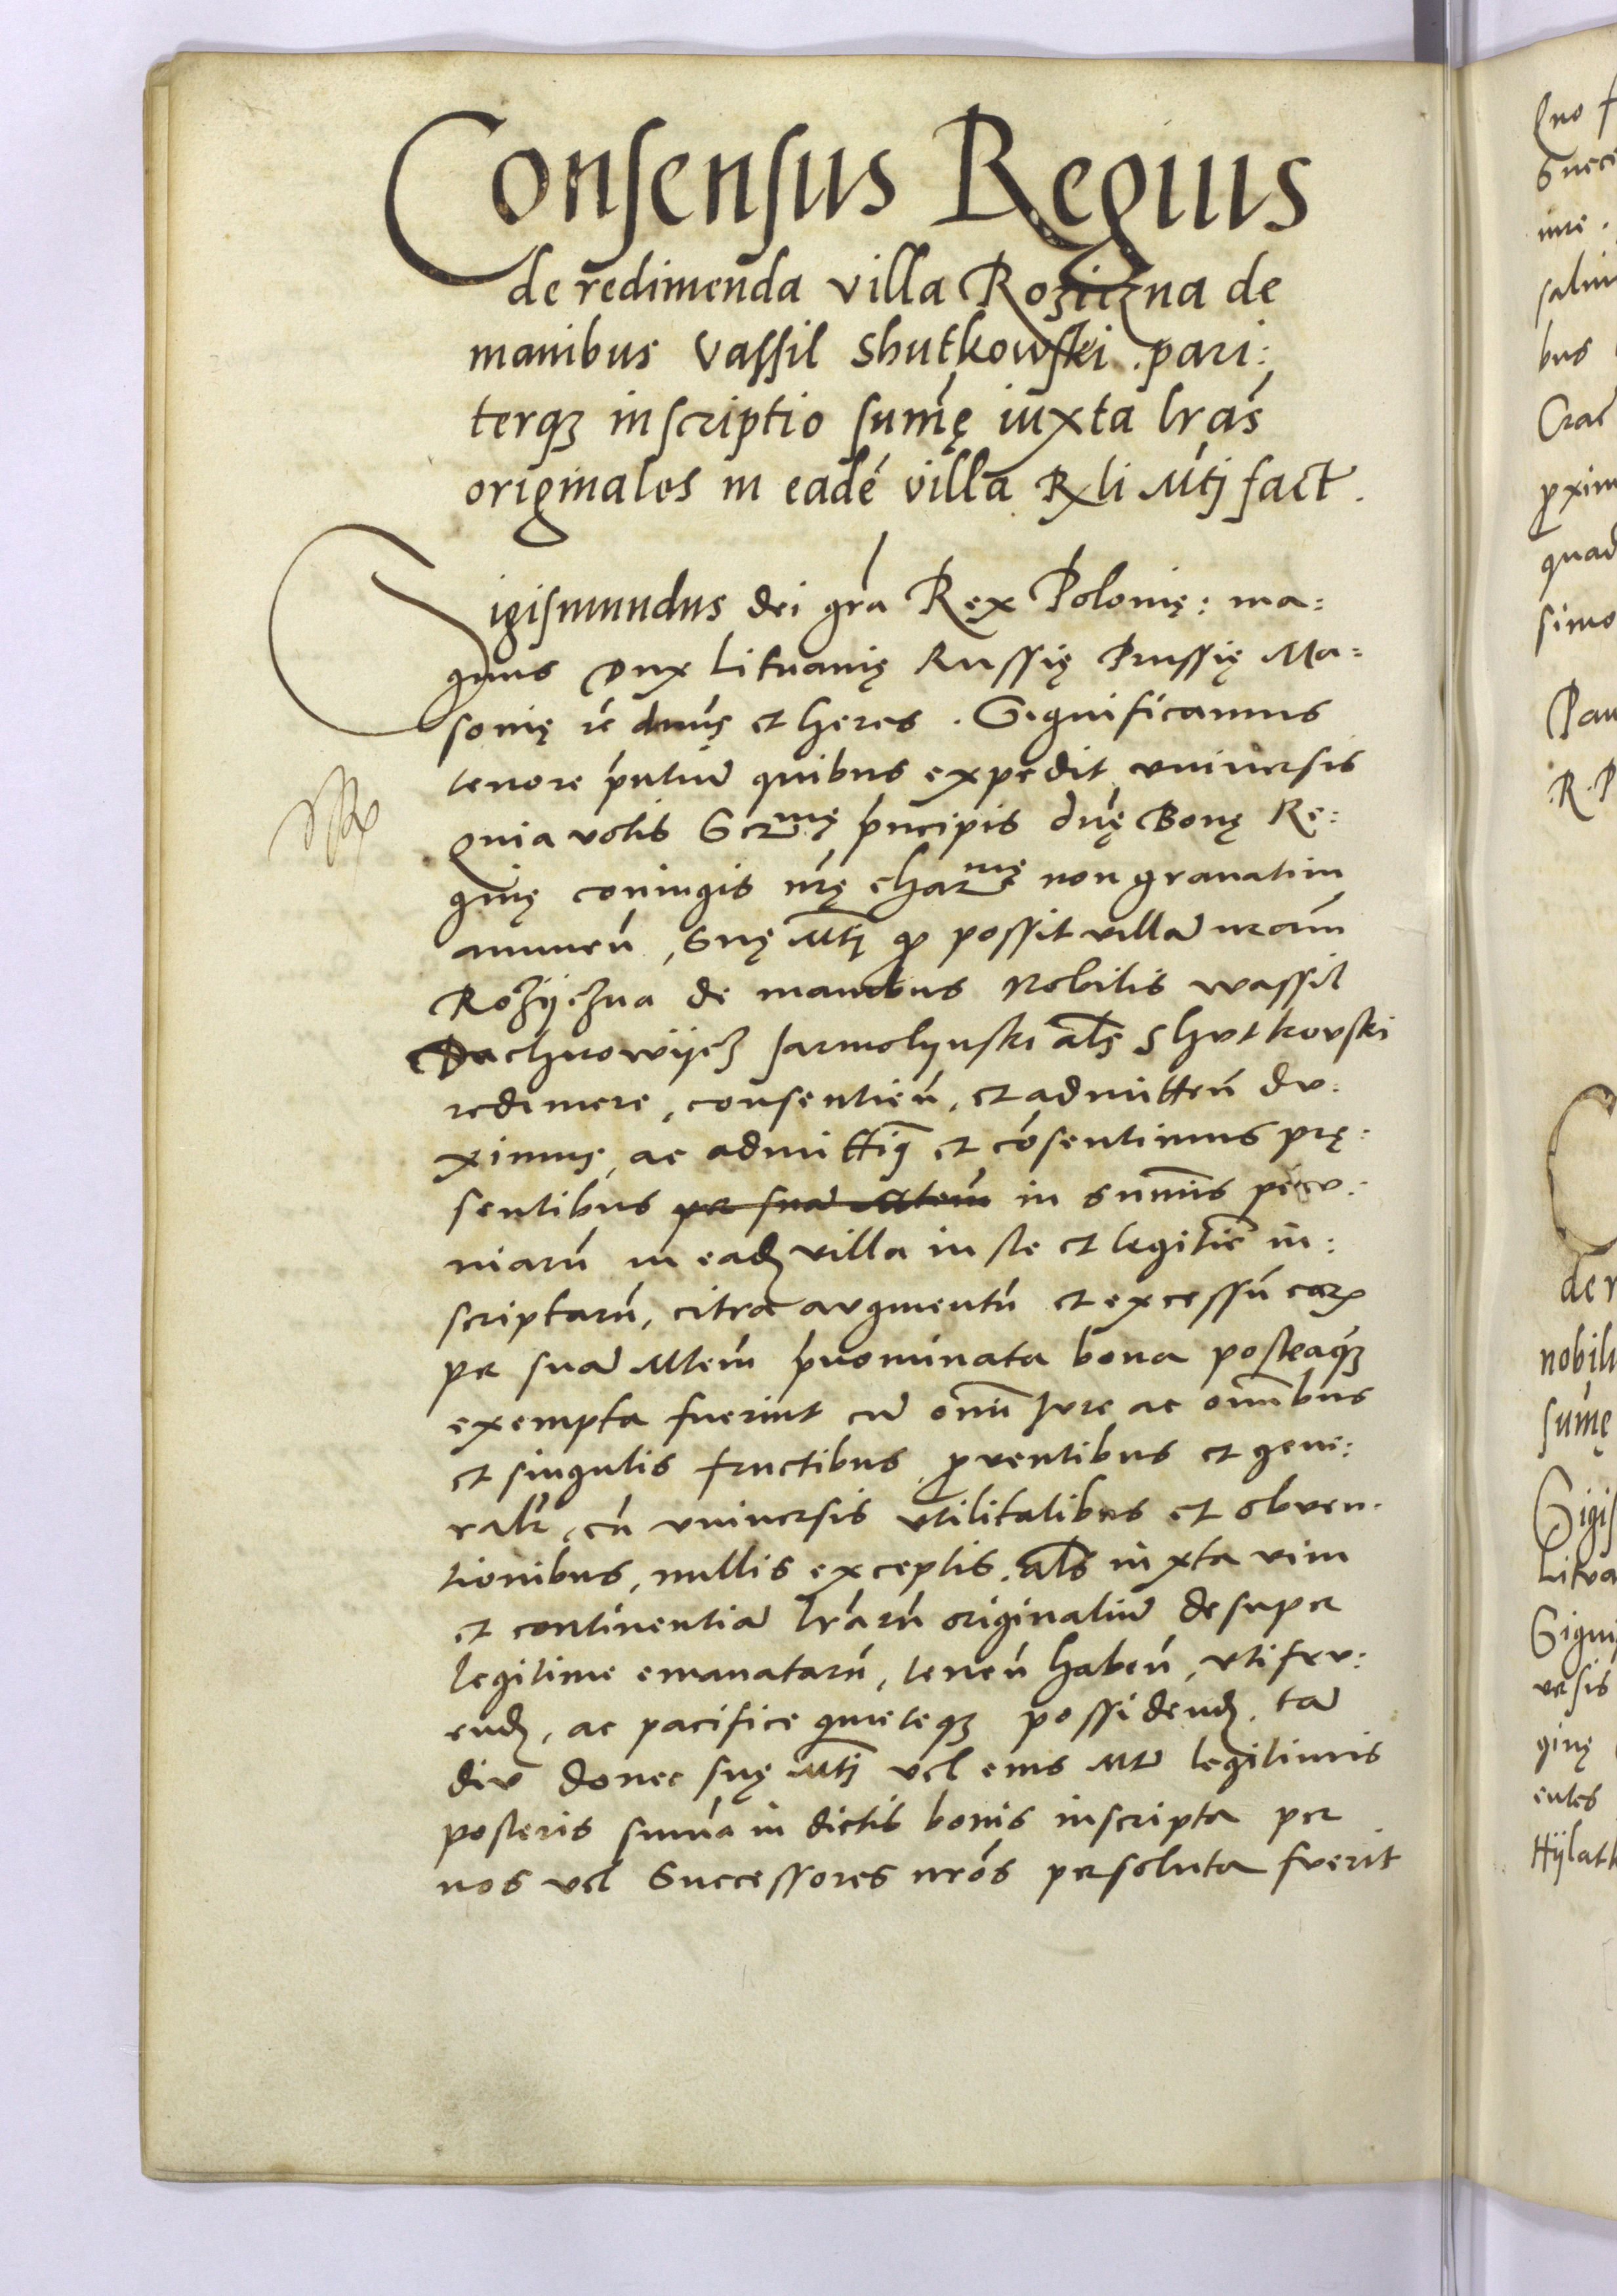 Consensus Regius
de redimenda villa Roziczna de
manibus Vassil Shutkowski . pari:
terq₃ inscriptio sum̃ę iuxta lrás
originales in eadé villa Rli Mti̇ fact .
Sigismundus dei gra Rex Polonię: ma=
gnus Dux Lituanię Russię Prussię Ma=
sonię ꝛc dnus et heres . Significamus
tenore p̃ntiũ quibus expedit universis
Quia votis Ser^mę p̃ncipis dn̄ę Bonę Re:
ginę coniugis nr̃ę char^mę non gravatim
annueñ, Suę Mti̇ qȝ possit villã nrãm
Rozÿczna de manibus Nobilis wassil
Dachnowÿcz Jarmolynski als̃ Shutkovski
redimere, consentieñ, et admitteñ du:
ximus, ac admittimꝰ et cõsentimus prę:
sentibus per suã Mtem in summis pecu:
niarũ in eadẽ villa iuste et legitiẽ in:
scriptarũ, citra augmentũ et excessũ earꝝ
per suã Mtem p̃nominata bona posteaq́ȝ
exempta fuerint cũ omni Jure ac omnibus
et singulis fructibus, ꝓventibus et gene:
ralr̃, cũ universis utilitatibus et obven:
tionibus, nullis exceptis. als̃ iuxta vim
et continentiã lrárũ originaliũ desuper
legitime emanatarũ, teneñ habeñ, utifru:
enđ, ac pacifice quieteqȝ possidenđ. tã
diu donec suę Mti̇ vel eius Mtis legitimis
posteris summa in dictis bonis inscripta per
nos vel Successores nrós persoluta fuerit